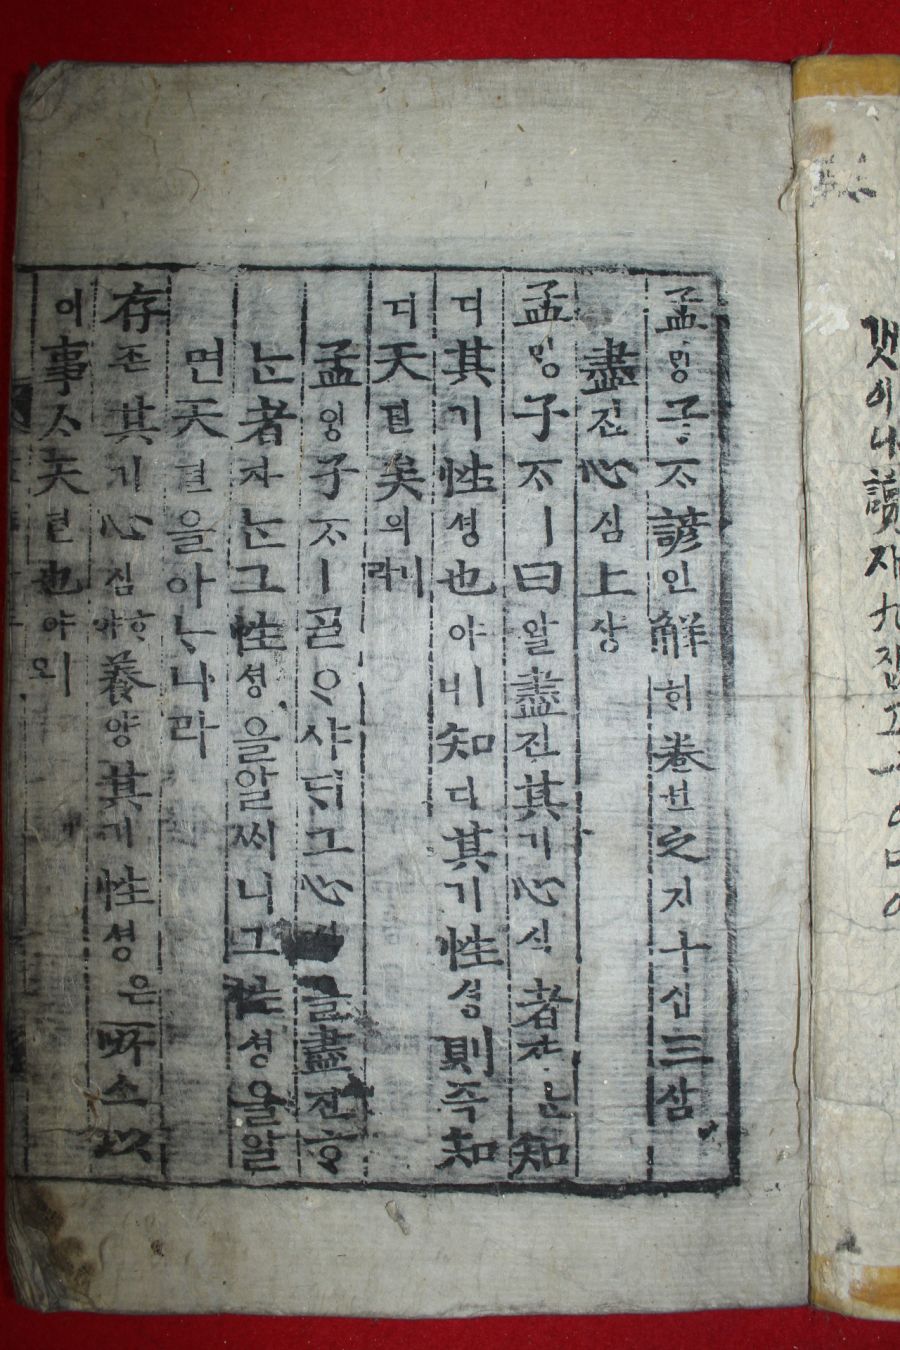 孟ᄆᆡᆼ子ᄌᆞ諺언解ᄒᆡ卷권之지十십三삼
盡진心심上샹
孟ᄆᆡᆼ子ᄌᆞㅣ曰왈盡진其기心심者쟈ᄂᆞᆫ知
디其기性셩也야ㅣ니知디其기性셩則즉知
디天텬矣의래
孟ᄆᆡᆼ子ᄌᆞㅣᄀᆞᆯᄋᆞ샤ᄃᆡ그心을盡진ᄒᆞ
ᄂᆞᆫ者쟈ᄂᆞᆫ그性셩을알ᄊᆡ니그性셩을알
면天텬을아ᄂᆞ니라
存존其기心심ᄒᆞ야養양其기性셩은所소以
이事ᄉᆞ天텬也야ㅣ오